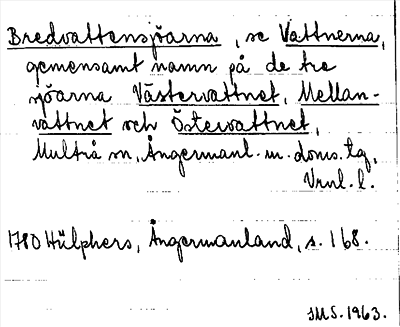 Bredvattensjöarna, se Vattnerna,
gemensamt namn på de tre
sjöarna Västervattnet, Mellan-
vattnet och Östervattnet,
Multrå sn, Ångermanl. m. doms. tg,
Vrnl. l.
1780 Hülphers, Ångermanland, s. 168.
JMS. 1963.